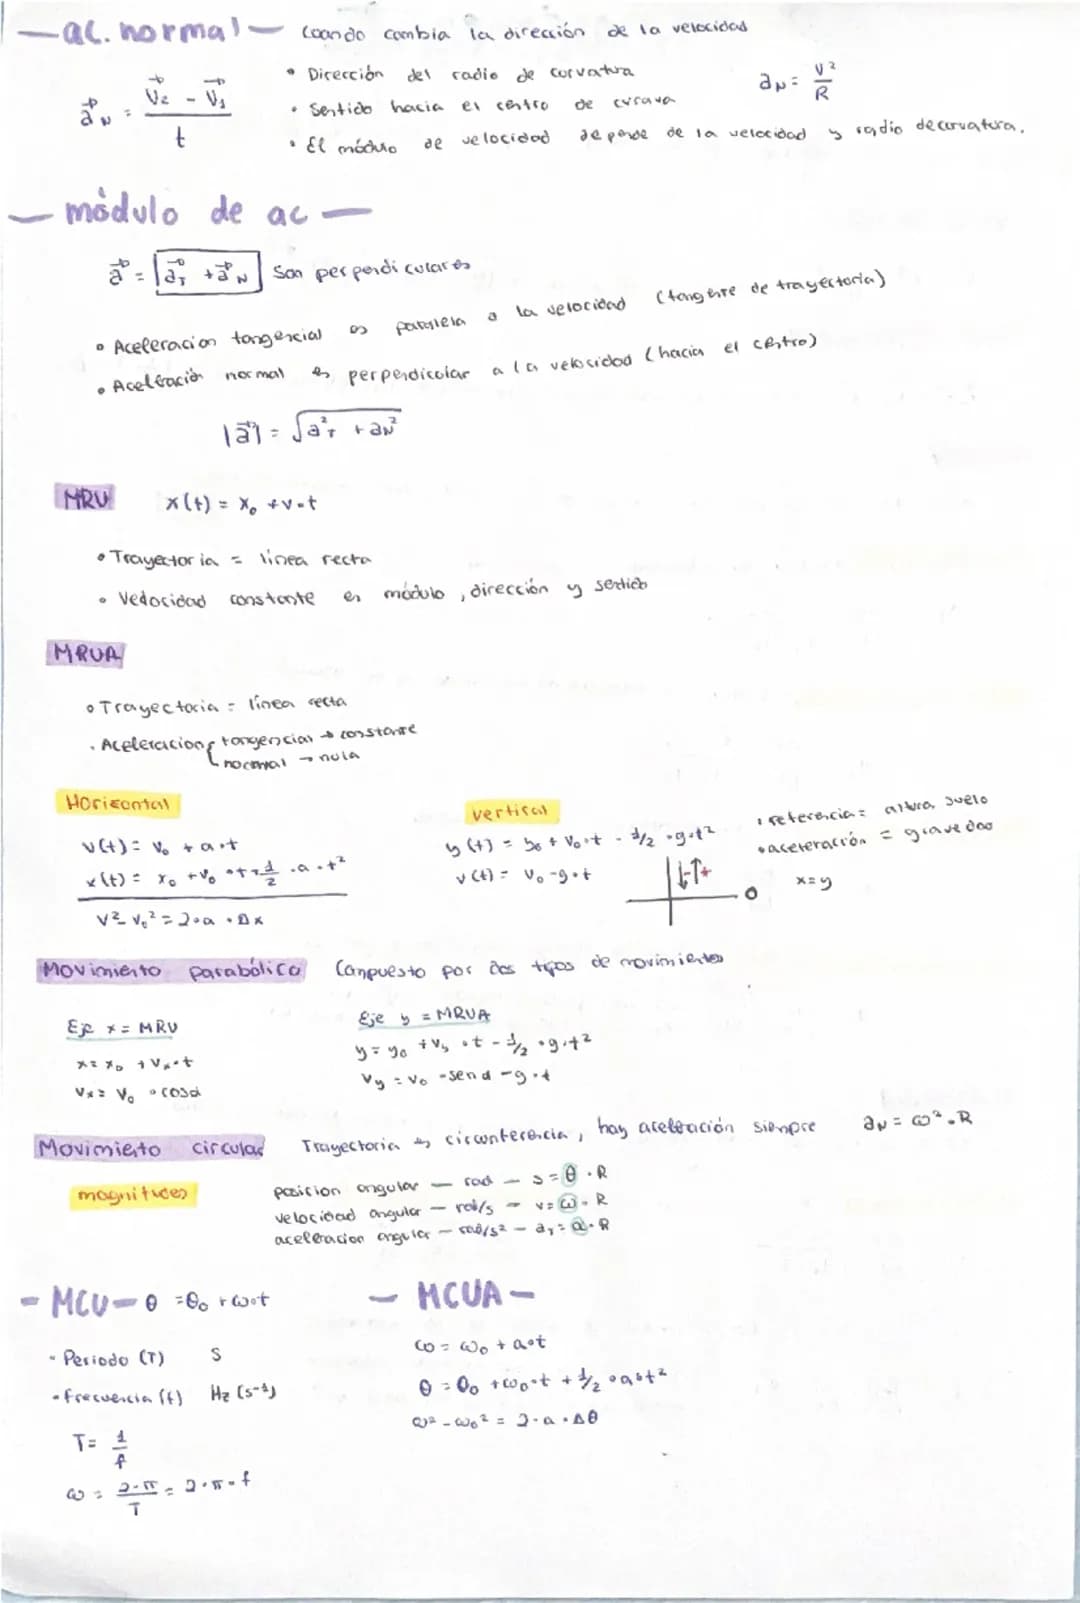 — ac. normal — cuando cambia la dirección de la velocidad
a⃗N = (v⃗2 - v⃗1) / t
• Dirección del radio de curvatura
aN = v² / R
• Sentido hacia el centro de curava
• El módulo de velocidad depende de la velocidad y radio de curvatura.
— módulo de ac —
a⃗ = a⃗T + a⃗N Son perpendiculares
• Aceleracion tangencial es paralela a la velocidad (tangente de trayectoria)
• Aceleración normal es perpendicular a la velocidad (hacia el centro)
|a⃗| = √(a²T + aN²)
MRU x(t) = x₀ + v·t
• Trayectoria = línea recta
• Velocidad constante en módulo, dirección y sentido
MRUA
• Trayectoria = línea recta
• Aceleracion { tangencial → constante
normal → nula
Horizontal
v(t) = v₀ + a·t
x(t) = x₀ + v₀·t + 1/2 · a · t²
v² - v₀² = 2·a·Δx
vertical
y(t) = y₀ + v₀·t - 1/2 · g·t²
v(t) = v₀ - g·t
↓- ↑+
0
• referencia = altura suelo
• aceleración = gravedad
x = y
Movimiento parabólico Compuesto por dos tipos de movimientos
Eje x = MRU
x = x₀ + vₓ·t
vₓ = v₀ · cosα
Eje y = MRUA
y = y₀ + vy · t - 1/2 · g·t²
vy = v₀ · senα - g·t
Movimiento circular Trayectoria es circunferencia, hay aceleración siempre aN = ω²·R
magnitudes
posicion angular — rad — s = θ · R
velocidad angular — rad/s — v = ω · R
aceleracion angular — rad/s² — aT = α · R
- MCU - θ = θ₀ + ω·t
• Periodo (T) s
• frecuencia (f) Hz (s⁻¹)
T = 1 / f
ω = 2·π / T = 2·π·f
— MCUA —
ω = ω₀ + α·t
θ = θ₀ + ω₀·t + 1/2 · α·t²
ω² - ω₀² = 2·α·Δθ